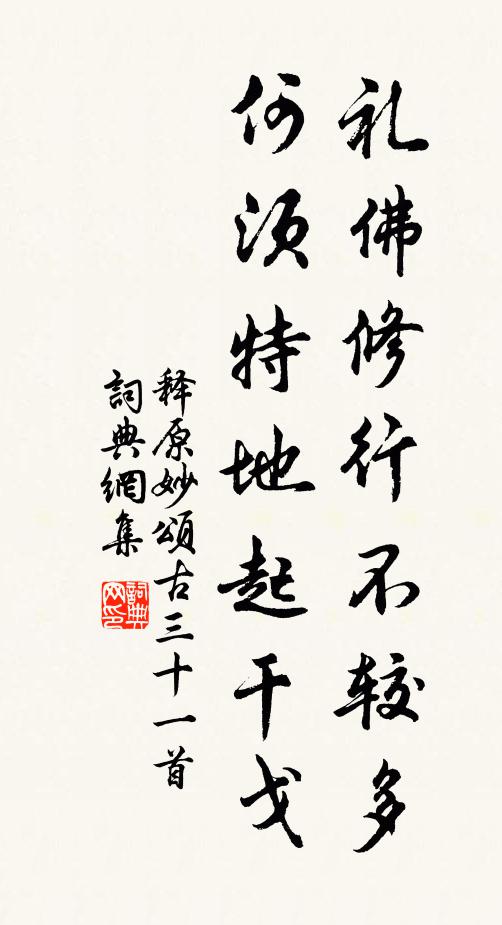 礼佛修行不较多
何须特地起干戈
释原妙頌古三十一首
詞典網集
詞典网印